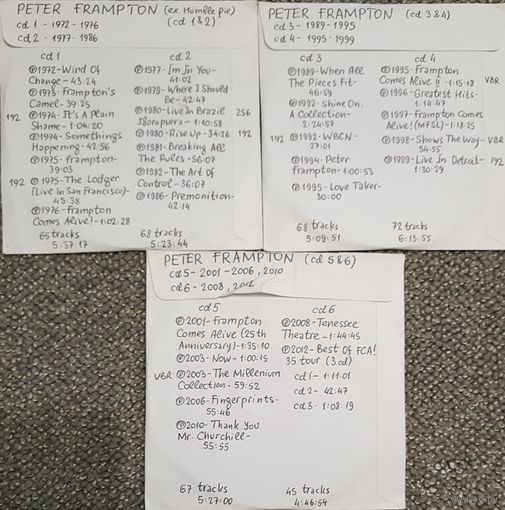 PETER FRAMPTON (ex. Humble Pie)
(cd 1&2)
cd 1 - 1972-1976
cd 2 - 1977-1986
cd 1
℗1972-Wind Of
Change-43:24
℗1973-Frampton's
Camel-39:25
192 ℗1974-It's A Plain
Shame-1:04:20
℗1974-Somethings
Happening-42:56
℗1975-Frampton-
39:03
192 ℗1975-The Lodger
(Live In San Francisco)-
45:38
℗1976-Frampton
Comes Alive!-1:02:28
65 tracks
5:37:17
cd 2
℗1977-I'm In You-
41:02
℗1979-Where I Should
Be-42:47
℗1980-Live In Brazil 256
Ibirapuera-1:10:58
℗1980-Rise Up-34:26 192
℗1981-Breaking All
The Rules-56:07
℗1982-The Art Of
Control-36:07
℗1986-Premonition-
42:14
68 tracks
5:23:44
PETER FRAMPTON (cd 3&4)
cd 3-1989-1995
cd 4-1995-1999
cd 3
℗1989-When All
The Pieces Fit-
46:59
℗1992-Shine On.
A Collection-
2:24:57
192 ℗1992-WBCN-
27:01
℗1994-Peter
Frampton-1:00:53
℗1995-Love Taker-
30:00
68 tracks
5:09:51
cd 4
℗1995-Frampton
Comes Alive II-1:15:18 VBR
℗1996-Greatest Hits-
1:14:47
℗1997-Frampton Comes
Alive! (MFSL)-1:18:25
℗1998-Shows The Way- VBR
54:55
℗1999-Live In Detroit- 192
1:30:29
72 tracks
6:13:55
PETER FRAMPTON (cd 5&6)
cd 5-2001-2006, 2010
cd 6-2008, 2012
cd 5
℗2001-Frampton
Comes Alive (25th
Anniversary)-1:35:10
℗2003-Now-1:00:15
VBR ℗2003-The Millenium
Collection-59:52
℗2006-Fingerprints-
55:46
℗2010-Thank You
Mr. Churchill-
55:55
67 tracks
5:27:00
cd 6
℗2008-Tenessee
Theatre-1:44:45
℗2012-Best Of FCA!
35 tour (3cd)
cd 1-1:11:01
cd 2-42:47
cd 3-1:08:19
45 tracks
4:46:54